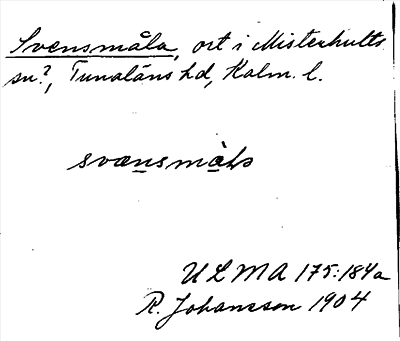 Svensmåla, ort i Misterhults
sn?, Tunaläns hd, Kalm. l.
ULMA 175:184a
R. Johansson 1904